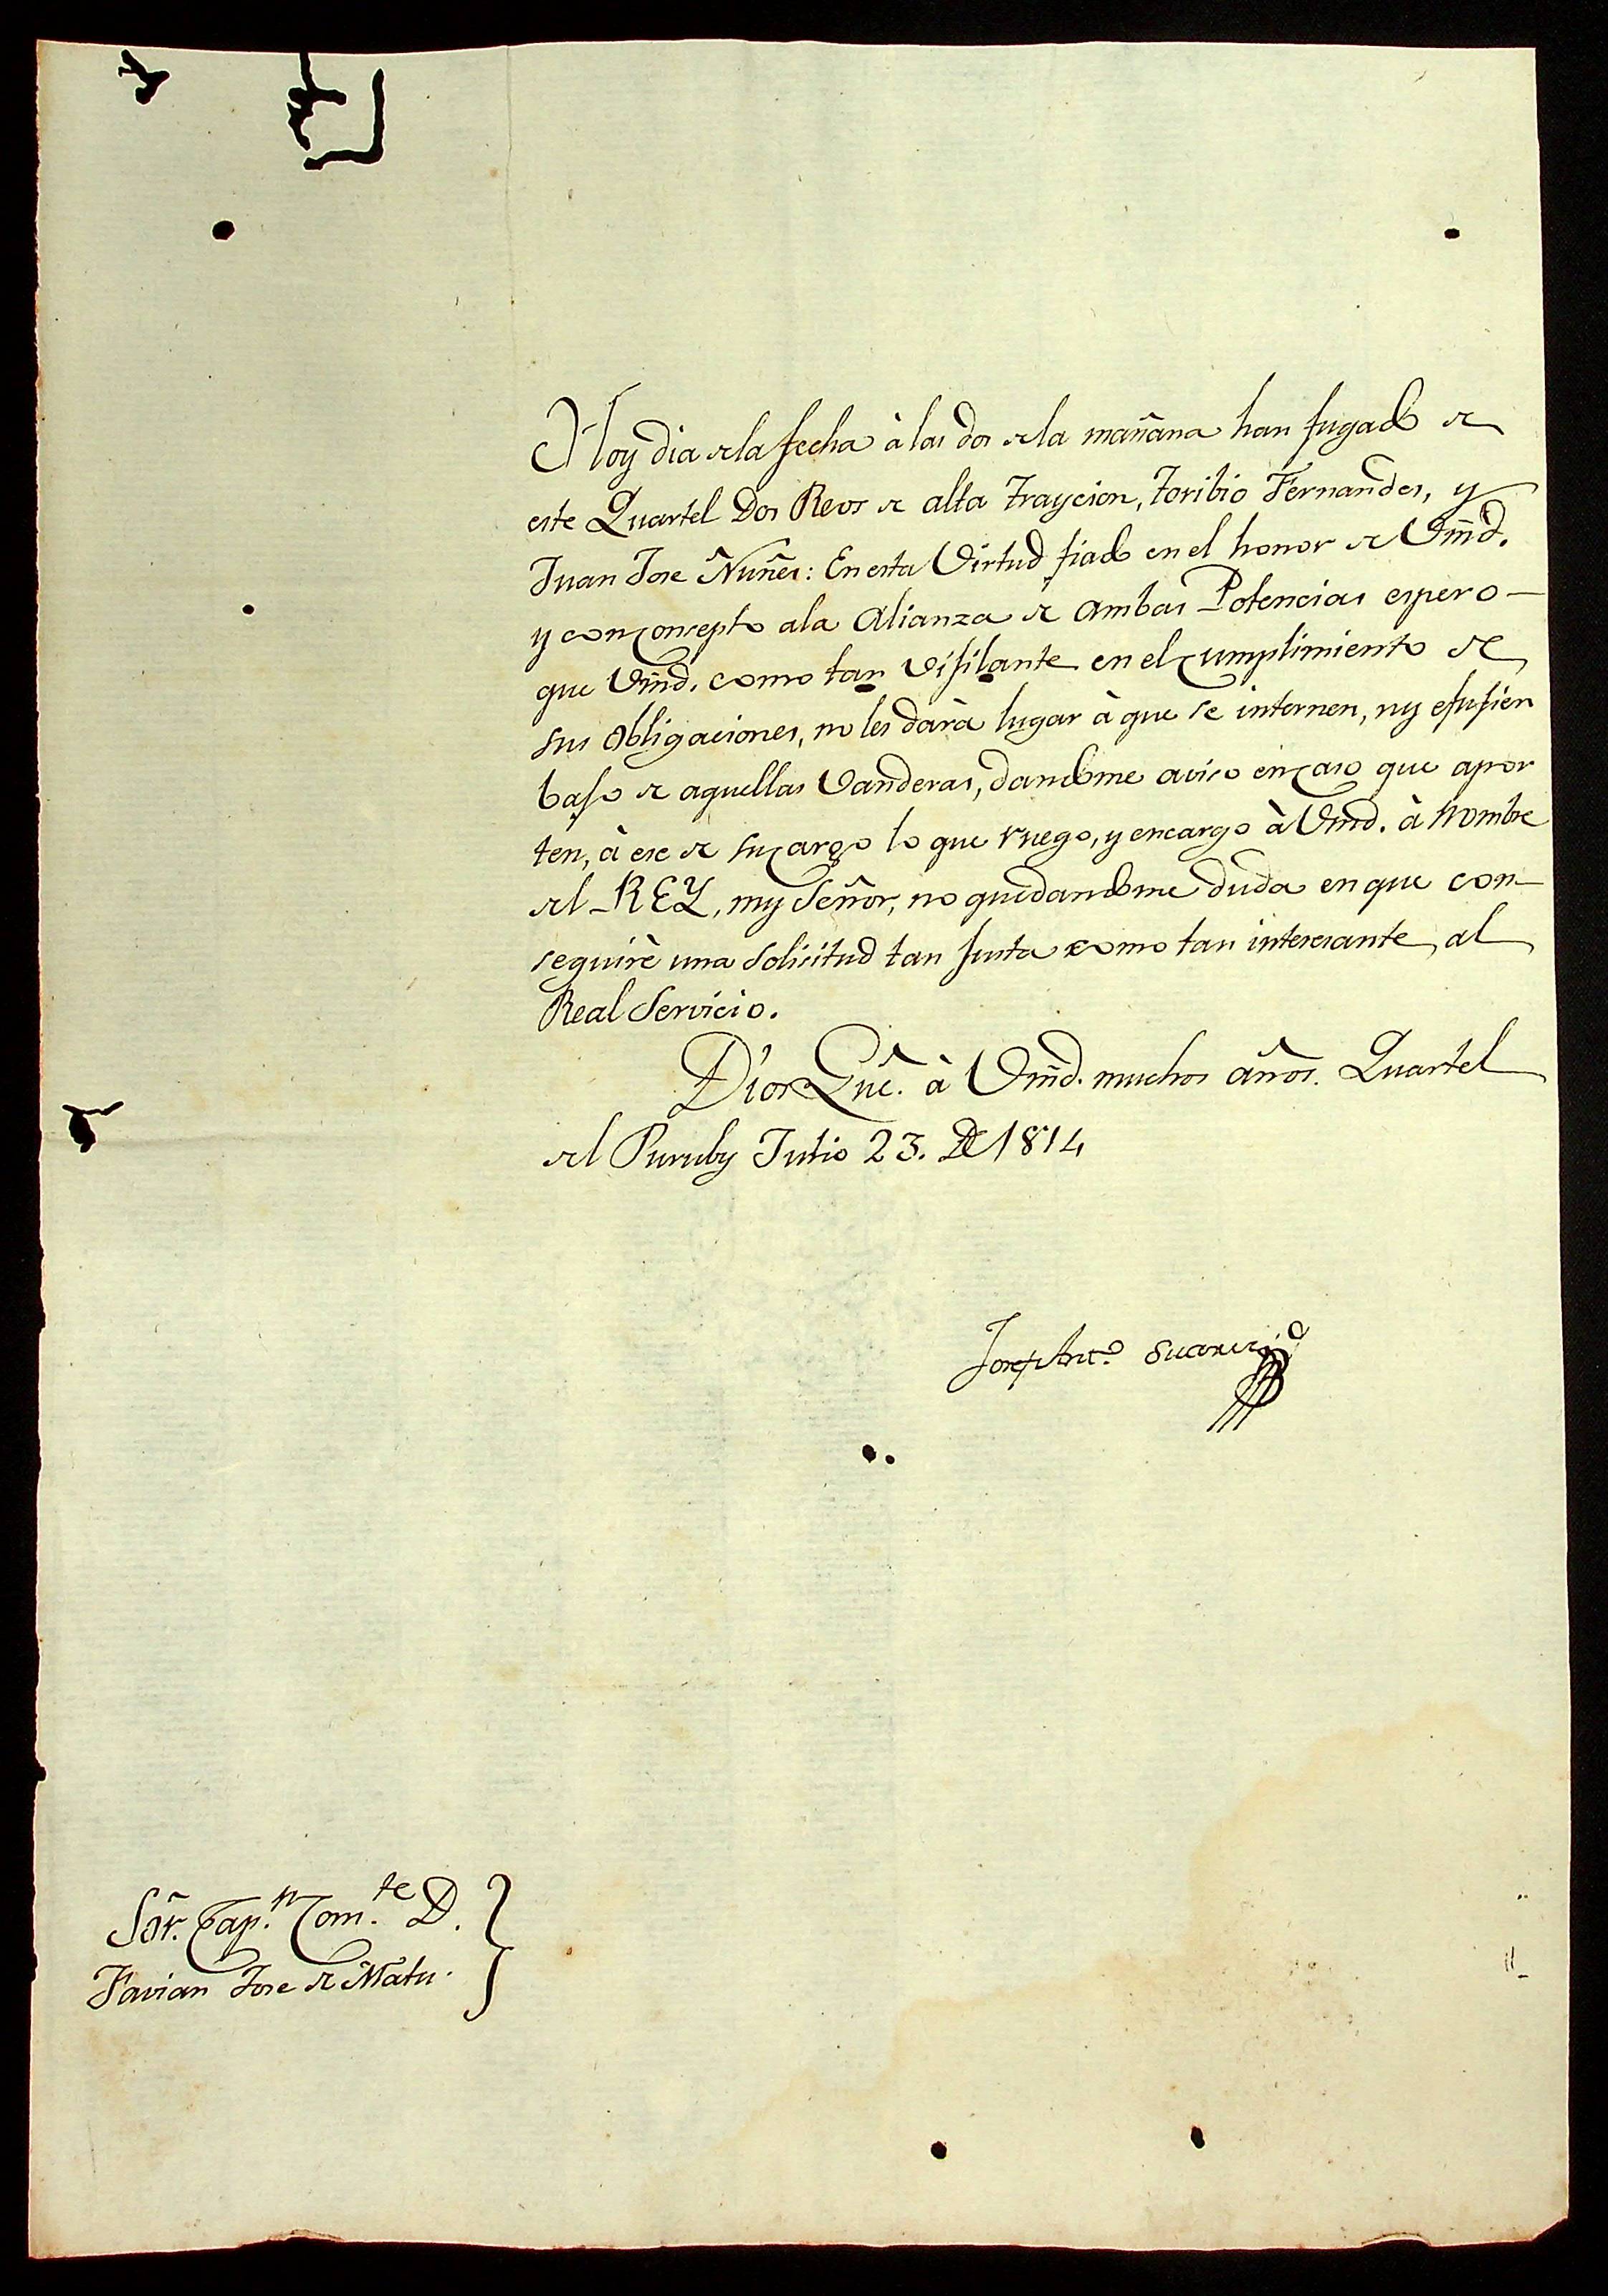 Hoy dia de la fecha à las dos de la mañana han fugado de
este Quartel Dos Reos de alta Traycion, Toribio Fernandes, y
Juan Jose Ñuñes: En esta Virtud fiado en el honor de Vm̃d.
y con consepto ala Alianza de ambas Potencias espero—
que Vm̃d. como tan vijilante en el cumplimiento de
sus obligaciones, no les darà lugar à que se internen, ny
bajo de aquellas Vanderas, dandome aviso en caso que apor
ten, à ese de su cargo lo que ruego, y encargo à Vm̃d. à Nombre
del REY, my Señor, no quedandome duda en que con—
seguirè una Solicitud tan justa como tan interesante al
Real Servicio.
Dios Gũe. à Vm̃d. muchos años. Quartel
del Puruby Julio 23. De 1814
Josef Antº. Suares
Sõr. Cap.n Com.te D.
Favian Jose de Matu.